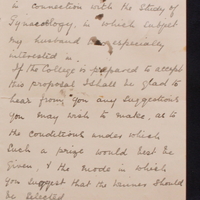 in connection with the Study of
Gynaecology, in which subject
my husband was especially
interested in.
If the College is prepared to accept
this proposal I shall be glad to
hear from you any suggestions
you may wish to make, as to
the conditions under which
such a prize would best be
given, & the mode in which
you suggest that the winner should
be selected